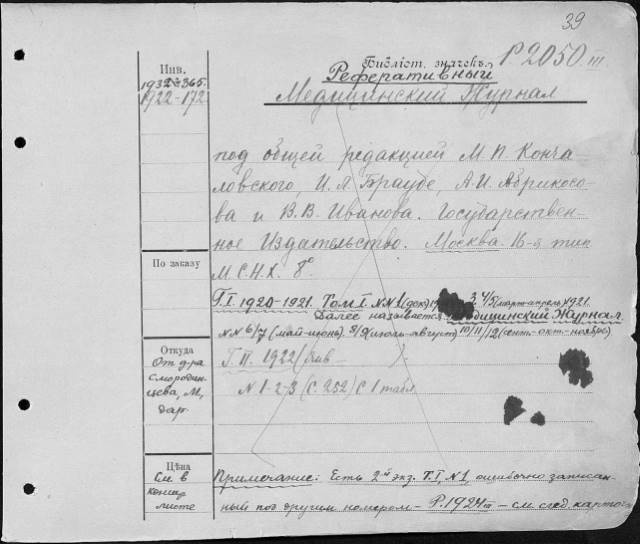 39
Инв.
1932 – 365.
1922 – 172
Библіот. значекъ P 2050 III.
Реферативный
Медицинский Журнал
под общей редакцией М. П. Конча-
ловского, И. Л. Брауде, А. И. Абрикосо-
ва и В. В. Иванова. Государствен-
ное Издательство. Москва. 16-я тип
М. С. Н. Х. 8°
По заказу
Т. I 1920–1921. Том I N N 1 (дек) 3. 4/5 (март-апрель) 1921.
Далее называется Медицинский Журнал.
N N 6/7 (май-июнь). 8/9 (июль-август) 10/11/12 (сент.-окт.-ноябрь)
Откуда
От д-ра
Смородин-
цева, М,
дар.
Т. II. 1922 (янв – ).
N 1-2-3 (с. 252) с 1 табл
Цѣна
См в
конц
листе
Примечание: Есть 2й экз. Т. I, N 1, ошибочно записан-
ный под другим номером – P. 1924 III – см след. карточ